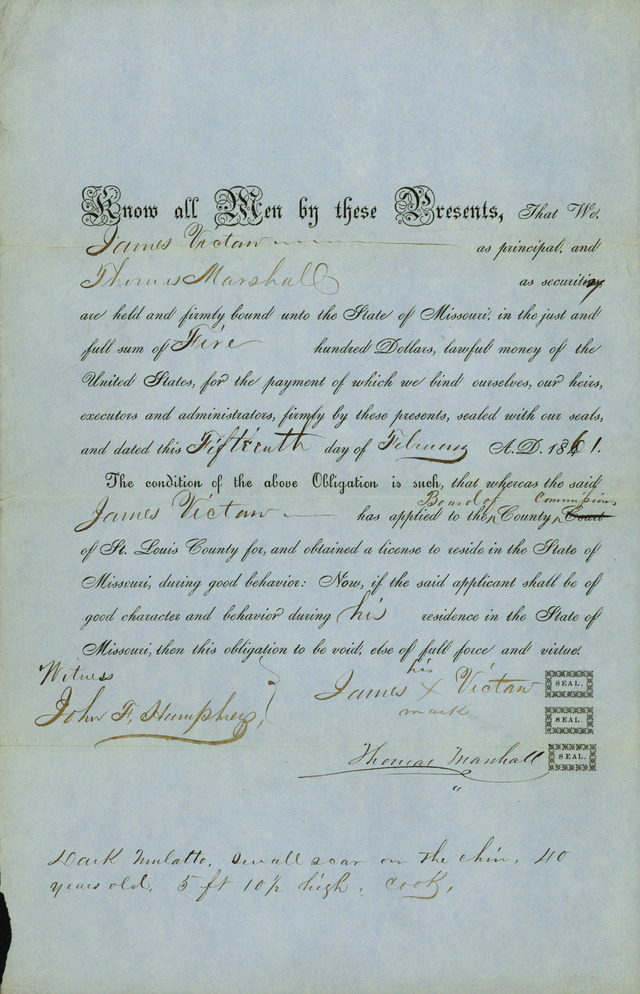 Know all Men by these Presents, That We,
James Victaw as principal, and
Thomas Marshall as security
are held and firmly bound unto the State of Missouri, in the just and
full sum of Five hundred Dollars, lawful money of the
United States, for the payment of which we bind ourselves, our heirs,
executors and administrators, firmly by these presents, sealed with our seals,
and dated this Fifteenth day of February A. D. 1861.
The condition of the above Obligation is such, that whereas the said
Board of Commissioners
James Victaw has applied to the County Court
of St. Louis County for, and obtained a license to reside in the State of
Missouri, during good behavior: Now, if the said applicant shall be of
good character and behavior during his residence in the State of
Missouri, then this obligation to be void, else of full force and virtue.
Witness
his
James X Victaw SEAL.
mark
John F. Humphrey, SEAL.
Thomas Marshall SEAL.
Dark Mulatto, small scar on the chin, 40
years old, 5 ft 10½ high, cook,